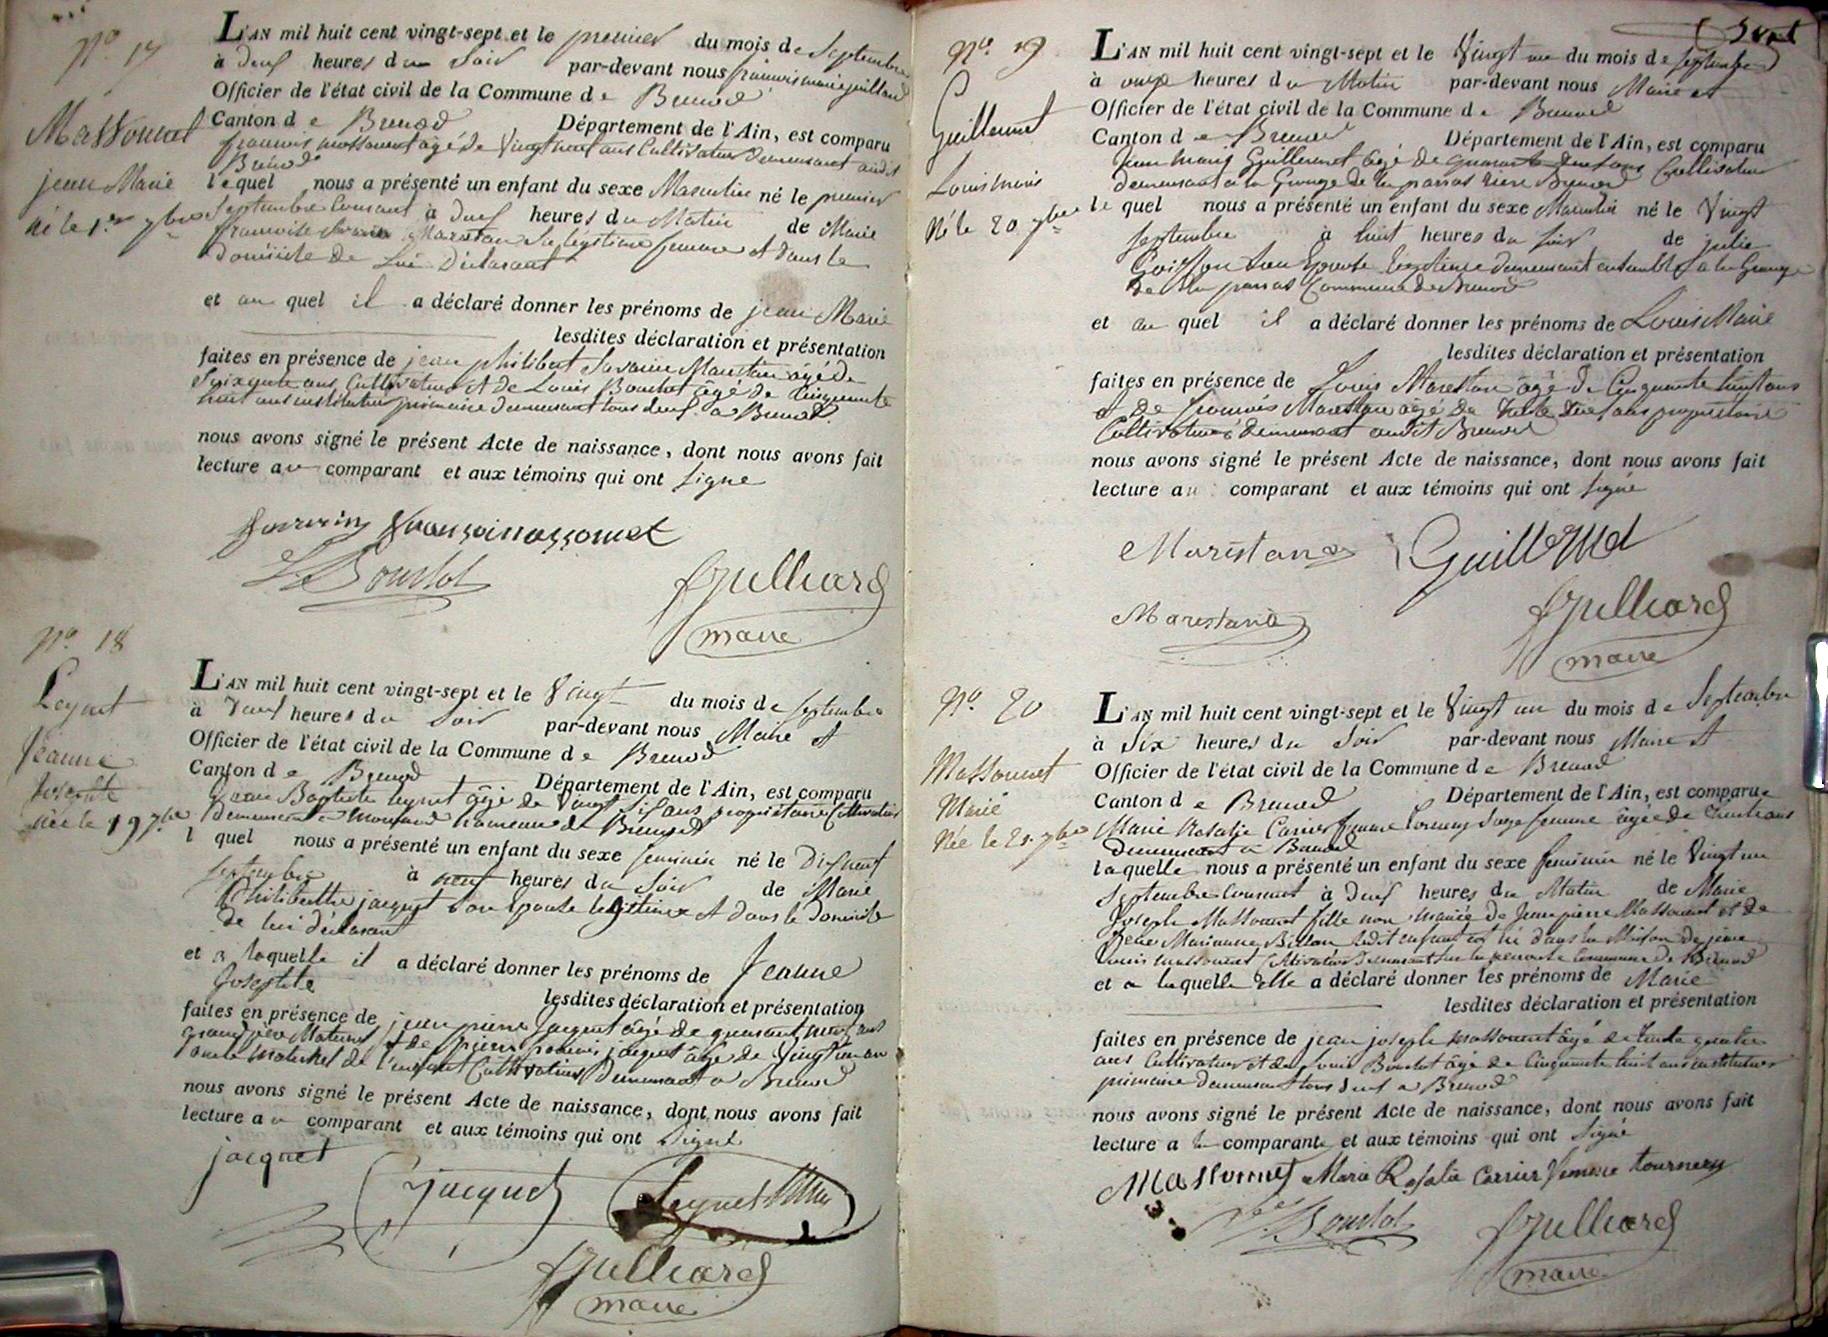 N.o 17
Massonnet
jean Marie
né le 1er 7bre
L'AN mil huit cent vingt-sept et le premier du mois de Septembre
à deux heures du Soir par-devant nous françois marie juillard
Officier de l'état civil de la Commune de Brenod
Canton de Brenod Département de l'Ain, est comparu
françois massonnet âgé de Vingt neuf ans Cultivateur demeurant audit
Brénod
lequel nous a présenté un enfant du sexe Masculin né le premier
Septembre Courant à deux heures du Matin de Marie
françoise Savarin Marestan Sa légitime femme et dans le
domicile de Lui Déclarant
et au quel il a déclaré donner les prénoms de jean Marie
lesdites déclaration et présentation
faites en présence de jean philibert Savarin Marestan âgé de
Soixante ans Cultivateur et de Louis Bourlot âgé de Cinquante
huit ans instituteur primaire demeurant tous deux a Brenod
nous avons signé le présent Acte de naissance, dont nous avons fait
lecture au comparant et aux témoins qui ont Signé
Savarin françois massonnet
L Bourlot
fJulliard
maire
N.o 18
Leynet
Jeanne
Josephte
née le 19 7bre
L'AN mil huit cent vingt-sept et le Vingt du mois de septembre
à deux heures du Soir par-devant nous Maire et
Officier de l'état civil de la Commune de Brenod
Canton de Brenod Département de l'Ain, est comparu
jean Baptiste leynet âgé de Vingt Six ans propriétaire Cultivateur
demeurant a hameau de Brenod
l quel nous a présenté un enfant du sexe feminin né le Dix neuf
septembre à neuf heures du Soir de Marie
Philiberthe jacquet son épouse legitime et dans le domicile
de lui déclarant
et a laquelle il a déclaré donner les prénoms de Jeanne
Josephte
lesdites déclaration et présentation
faites en présence de jean pierre Jacquet âgé de quarante neuf ans
grand père Maternel et de pierre françois jacquet âgé de Vingt un an
oncle maternel de l'enfant Cultivateurs demeurant a Brenod
nous avons signé le présent Acte de naissance, dont nous avons fait
lecture au comparant et aux témoins qui ont Signé
jacquet
Cjacquet Leynet
fJulliard
maire
N.o 19
Guillermet
Louis marie
Né le 20 7bre
L'AN mil huit cent vingt-sept et le Vingt un du mois de septembre
à onze heures du Matin par-devant nous Maire et
Officier de l'état civil de la Commune de Brenod
Canton de Brenod Département de l'Ain, est comparu
Jean Marie Guillermet âgé de quarante deux ans Cultivateur
demeurant a la Grange de la parras riere Brenod
le quel nous a présenté un enfant du sexe Masculin né le Vingt
septembre à huit heures du Soir de julie
Goiffon son épouse légitime demeurant ensemble a la Grange
de la parras Commune de Brenod
et au quel il a déclaré donner les prénoms de Louis Marie
lesdites déclaration et présentation
faites en présence de Louis Marestan âgé de Cinquante huit ans
et de françois Marestan âgé de trente deux ans propriétaires
Cultivateurs demeurant audit Brenod
nous avons signé le présent Acte de naissance, dont nous avons fait
lecture au comparant et aux témoins qui ont signé
Marestan Guillermet
Marestan
fJulliard
maire
N.o 20
Massonnet
Marie
Née le 21 7bre
L'AN mil huit cent vingt-sept et le Vingt un du mois de Septembre
à Six heures du Soir par-devant nous Maire et
Officier de l'état civil de la Commune de Brenod
Canton de Brenod Département de l'Ain, est comparue
Marie Rosalie Carrier femme Tournery Sage femme âgée de trente ans
demeurant a Brenod
laquelle nous a présenté un enfant du sexe feminin né le Vingt un
Septembre Courant à deux heures du Matin de Marie
Joseph Massonnet fille non mariée de Jean pierre Massonnet et de
feue Marianne Billon ledit enfant est né dans la Maison de
Louis massonnet Cultivateur demeurant Commune de Brenod
et a laquelle Elle a déclaré donner les prénoms de Marie
lesdites déclaration et présentation
faites en présence de jean joseph massonnet âgé de trente quatre
ans Cultivateur et de Louis Bourlot âgé de Cinquante huit ans instituteur
primaire demeurant tous deux a Brenod
nous avons signé le présent Acte de naissance, dont nous avons fait
lecture a la comparante et aux témoins qui ont Signé
Massonnet Marie Rosalie Carrier femme tournery
L Bourlot
fJulliard
maire